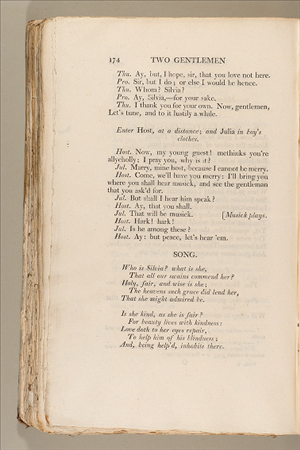 174 TWO GENTLEMEN
Thu. Ay, but, I hope, sir, that you love not here.
Pro. Sir, but I do; or else I would be hence.
Thu. Whom? Silvia?
Pro. Ay, Silvia,—for your sake.
Thu. I thank you for your own. Now, gentlemen,
Let's tune, and to it lustily a while.
Enter Host, at a distance; and Julia in boy's
clothes.
Host. Now, my young guest! methinks you're
allycholly; I pray you, why is it?
Jul. Marry, mine host, because I cannot be merry.
Host. Come, we'll have you merry: I'll bring you
where you shall hear musick, and see the gentleman
that you ask'd for.
Jul. But shall I hear him speak?
Host. Ay, that you shall.
Jul. That will be musick. [Musick plays.
Host. Hark! hark!
Jul. Is he among these?
Host. Ay: but peace, let's hear 'em.
SONG.
Who is Silvia? what is she,
That all our swains commend her?
Holy, fair, and wise is she;
The heavens such grace did lend her,
That she might admired be.
Is she kind, as she is fair?
For beauty lives with kindness:
Love doth to her eyes repair,
To help him of his blindness;
And, being help'd, inhabits there.